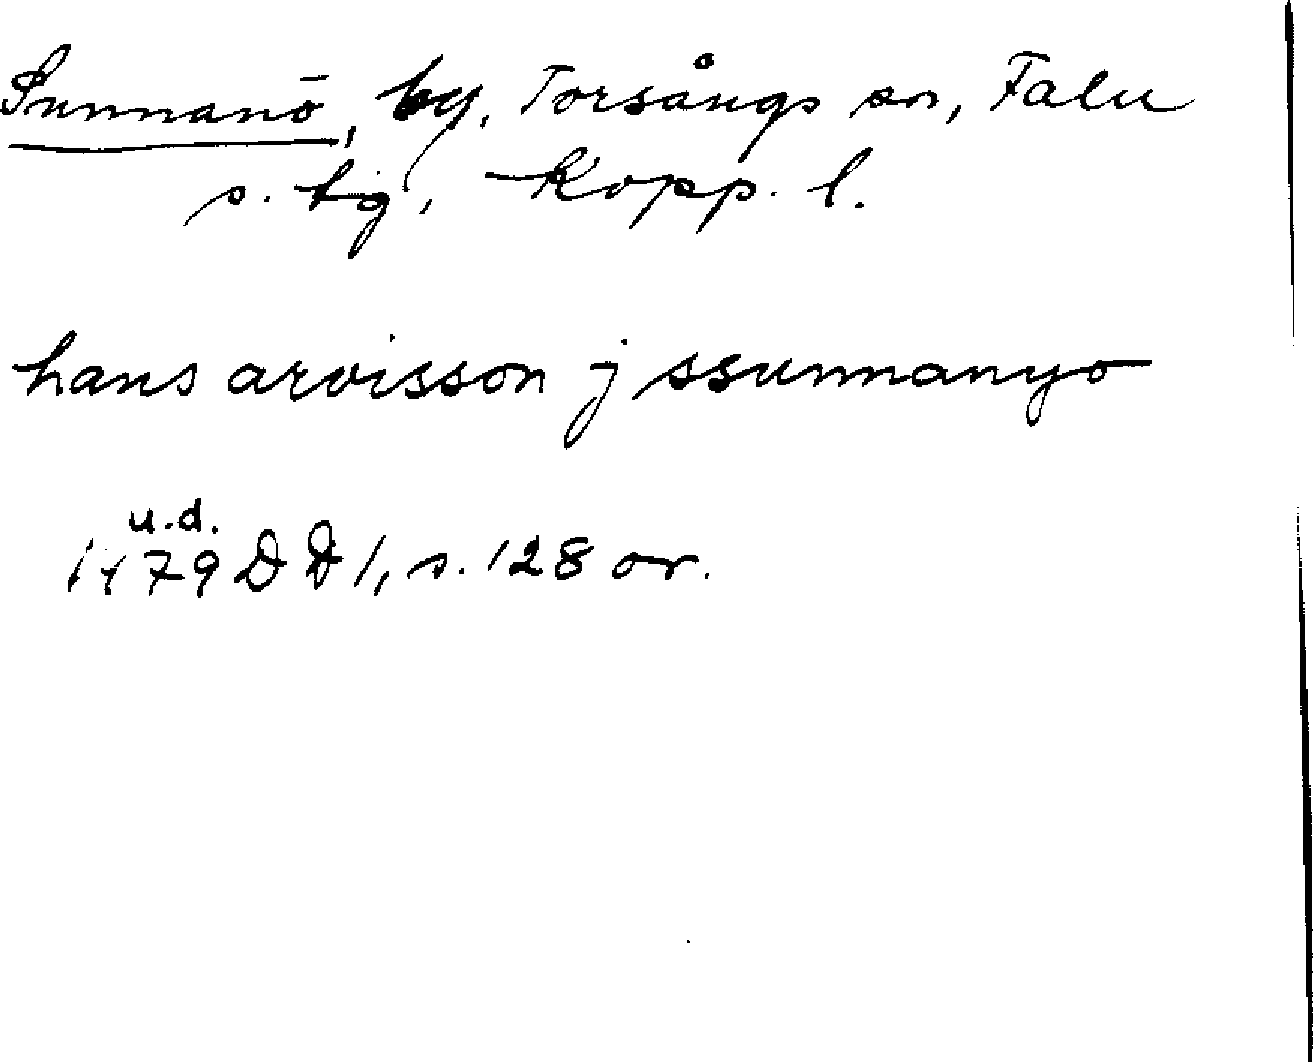 Sunnanö, by, Torsångs sn, Falu
s. tg, Kopp. l.
hans arvisson j ssunnanyo
u.d.
1479 DD 1, s. 128 or.